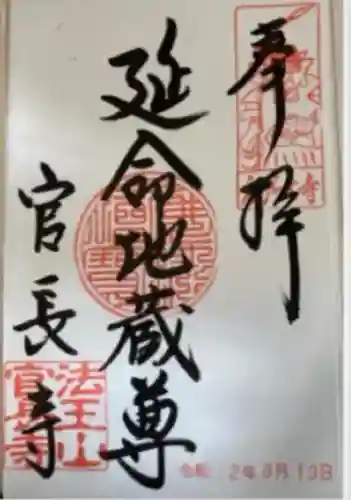 奉拝
延命地蔵尊
官長寺
法王山
官長寺
令和 2年8月13日